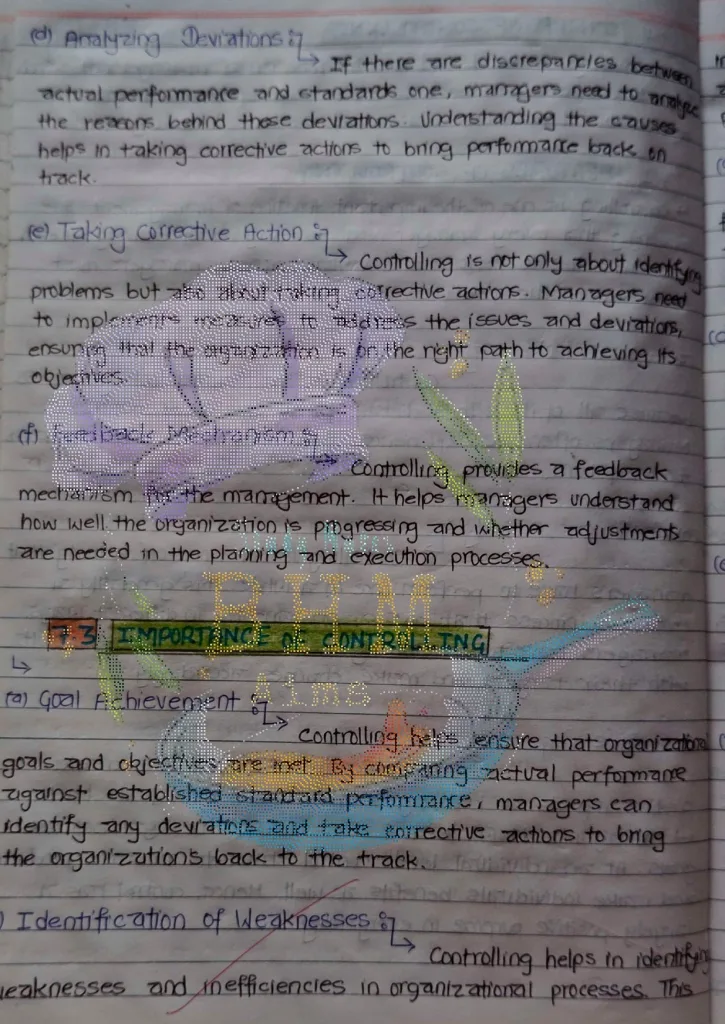 (d) Analyzing Deviations :-
If there are discrepancies between
actual performance and standards one, managers need to analyze
the reasons behind these deviations. Understanding the causes
helps in taking corrective actions to bring performance back on
track.
(e) Taking Corrective Action :-
Controlling is not only about identifying
problems but also about taking corrective actions. Managers need
to implements measures to address the issues and deviations,
ensuring that the organization is on the right path to achieving its
objectives.
(f) Feedback Mechanism :-
Controlling provides a feedback
mechanism for the management. It helps managers understand
how well the organization is progressing and whether adjustments
are needed in the planning and execution processes.
BHM
7.3 IMPORTANCE OF CONTROLLING
Aims
(a) Goal Achievement :-
Controlling helps ensure that organizational
goals and objectives are met. By comparing actual performance
against established standard performance, managers can
identify any deviations and take corrective actions to bring
the organizations back to the track.
) Identification of Weaknesses :-
Controlling helps in identifying
weaknesses and inefficiencies in organizational processes. This